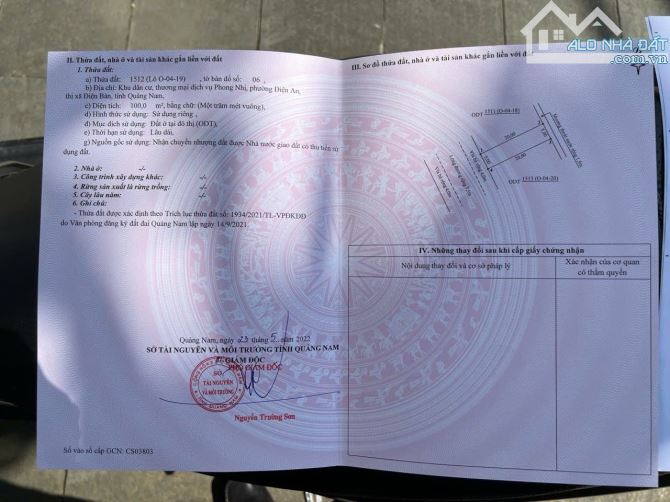 ALO NHÀ ĐẤT
.com.vn
II. Thửa đất, nhà ở và tài sản khác gắn liền với đất
1. Thửa đất:
a) Thửa đất: 1512 (Lô O-04-19) , tờ bản đồ số: 06 ,
b) Địa chỉ: Khu dân cư, thương mại dịch vụ Phong Nhị, phường Điện An,
thị xã Điện Bàn, tỉnh Quảng Nam,
c) Diện tích: 100,0 m², bằng chữ: (Một trăm mét vuông),
d) Hình thức sử dụng: Sử dụng riêng ,
đ) Mục đích sử dụng: Đất ở tại đô thị (ODT),
e) Thời hạn sử dụng: Lâu dài,
g) Nguồn gốc sử dụng: Nhận chuyển nhượng đất được Nhà nước giao đất có thu tiền sử
dụng đất.
2. Nhà ở: -/-
3. Công trình xây dựng khác: -/-
4. Rừng sản xuất là rừng trồng: -/-
5. Cây lâu năm: -/-
6. Ghi chú:
- Thửa đất được xác định theo Trích lục thửa đất số: 1934/2021/TL-VPĐKĐĐ
do Văn phòng đăng ký đất đai Quảng Nam lập ngày 14/9/2021.
Quảng Nam, ngày 23 tháng 5 năm 2022
SỞ TÀI NGUYÊN VÀ MÔI TRƯỜNG TỈNH QUẢNG NAM
GIÁM ĐỐC
PHÓ GIÁM ĐỐC
SỞ
TÀI NGUYÊN
VÀ MÔI TRƯỜNG
Nguyễn Trường Sơn
Số vào sổ cấp GCN: CS03803
III. Sơ đồ thửa đất, nhà ở và tài sản khác gắn liền với đất
ODT 1511 (O-04-18)
20,00
5,00
5,00
20,00
ODT 1513 (O-04-20)
IV. Những thay đổi sau khi cấp giấy chứng nhận
Nội dung thay đổi và cơ sở pháp lý
Xác nhận của cơ quan
có thẩm quyền